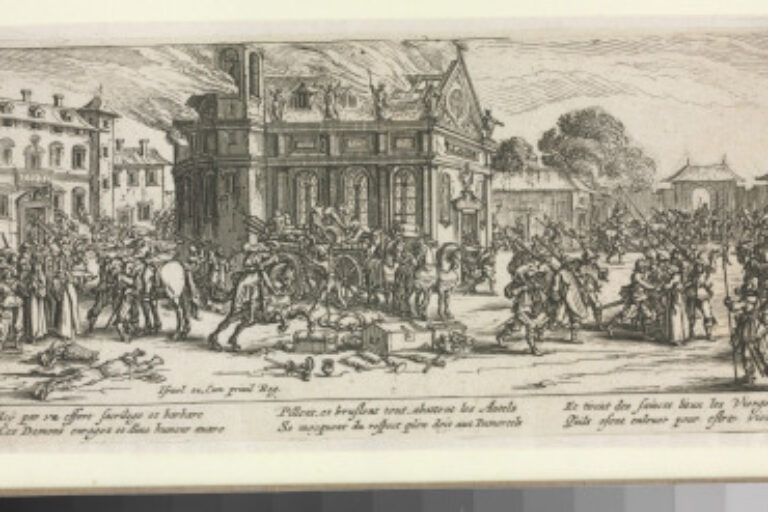 Israel ex. Cum priuil Reg.
par vn effort sacrilege et barbare
Ces Demons enragez et d'vne humeur auare
Pillent, et bruslent tout, abattent les Autels
Se mocquent du respect qu'on doit aux Immortels
Et tirent des saincts lieux les Vierge
Qu'ils osent enleuer pour estre